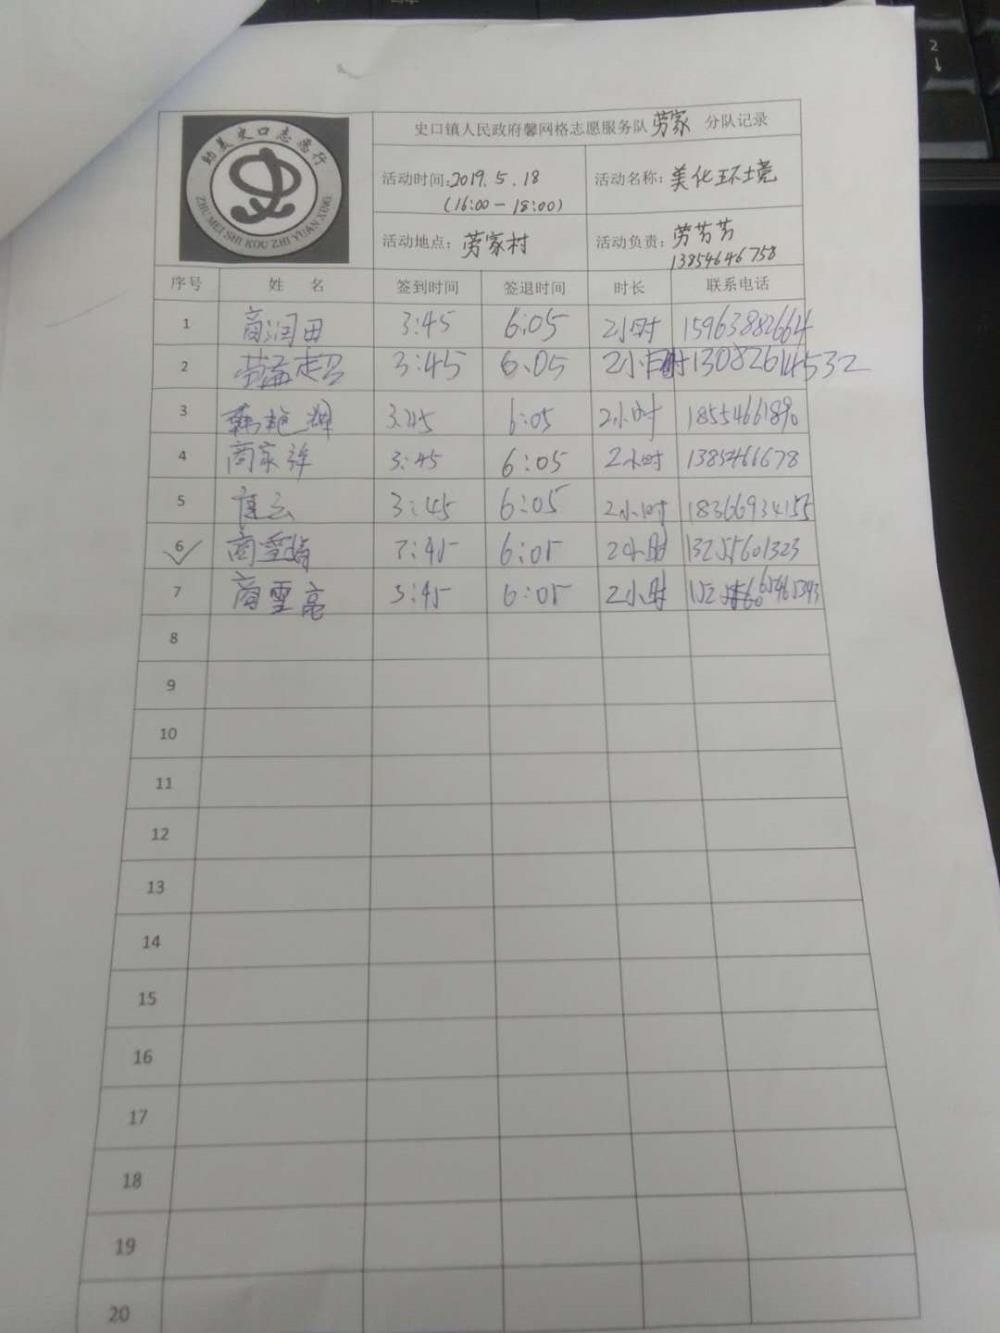 助美史口志愿行
ZHU MEI SHI KOU ZHI YUAN XING
史口镇人民政府馨网格志愿服务队劳家 分队记录
活动时间:2019.5.18
(16:00-18:00)
活动名称:美化环境
活动地点:劳家村
活动负责:劳芳芳
13854646758
序号 姓 名 签到时间 签退时间 时长 联系电话
1 商润田 3:45 6:05 2小时 15963882664
2 劳益超 3:45 6.05 2小时 13082614532
3 韩艳辉 3:45 6:05 2小时 1855466189
4 商家祥 3:45 6:05 2小时 1385466678
5 唐云 3:45 6:05 2小时 18366934155
6 商雪 6:05 2小时 13255601323
7 商雪亮 3:45 6:05 2小时
8
9
10
11
12
13
14
15
16
17
18
19
20
2